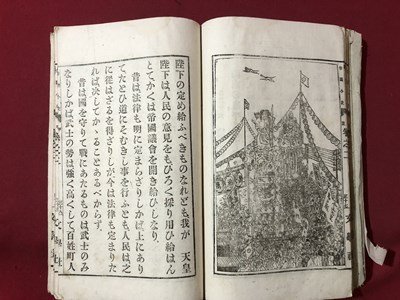 陛下の定め給ふべきものなれども我が 天皇
陛下は人民の意見をもひろく採り用ひ給はん
とてかくは帝國議會を開き給ひしなり、
昔は法律も明に定まらざりしかば上にあり
てたとひ道にそむきし事を行ふとも人民は之
に從はざるを得ざりしが今は法律も定まりた
れば決してかゝることあるべからず、
昔は國を守りて戰にあたるものは武士のみ
なりしかば武士の勢は強く高くして百姓町人